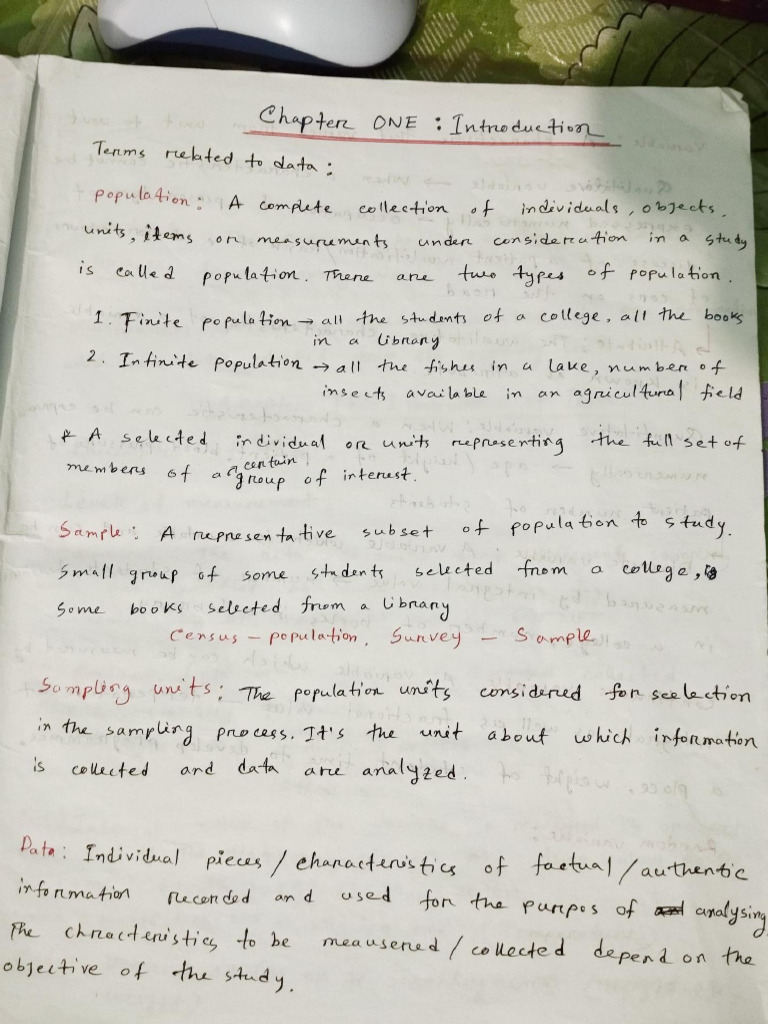 Chapter ONE : Introduction
Terms related to data :
population : A complete collection of individuals, objects,
units, items or measurements under consideration in a study
is called population. There are two types of population.
1. Finite population → all the students of a college, all the books
in a library
2. Infinite population → all the fishes in a lake, number of
insects available in an agricultural field
* A selected individual or units representing the full set of
members of a certain group of interest.
Sample : A representative subset of population to study.
Small group of some students selected from a college,
Some books selected from a library
Census – population, Survey – Sample
Sampling units : The population units considered for seelection
in the sampling process. It's the unit about which information
is collected and data are analyzed.
Data : Individual pieces / characteristics of factual / authentic
information recorded and used for the purpos of analysing
The chracteristics to be meausered / collected depend on the
objective of the study.